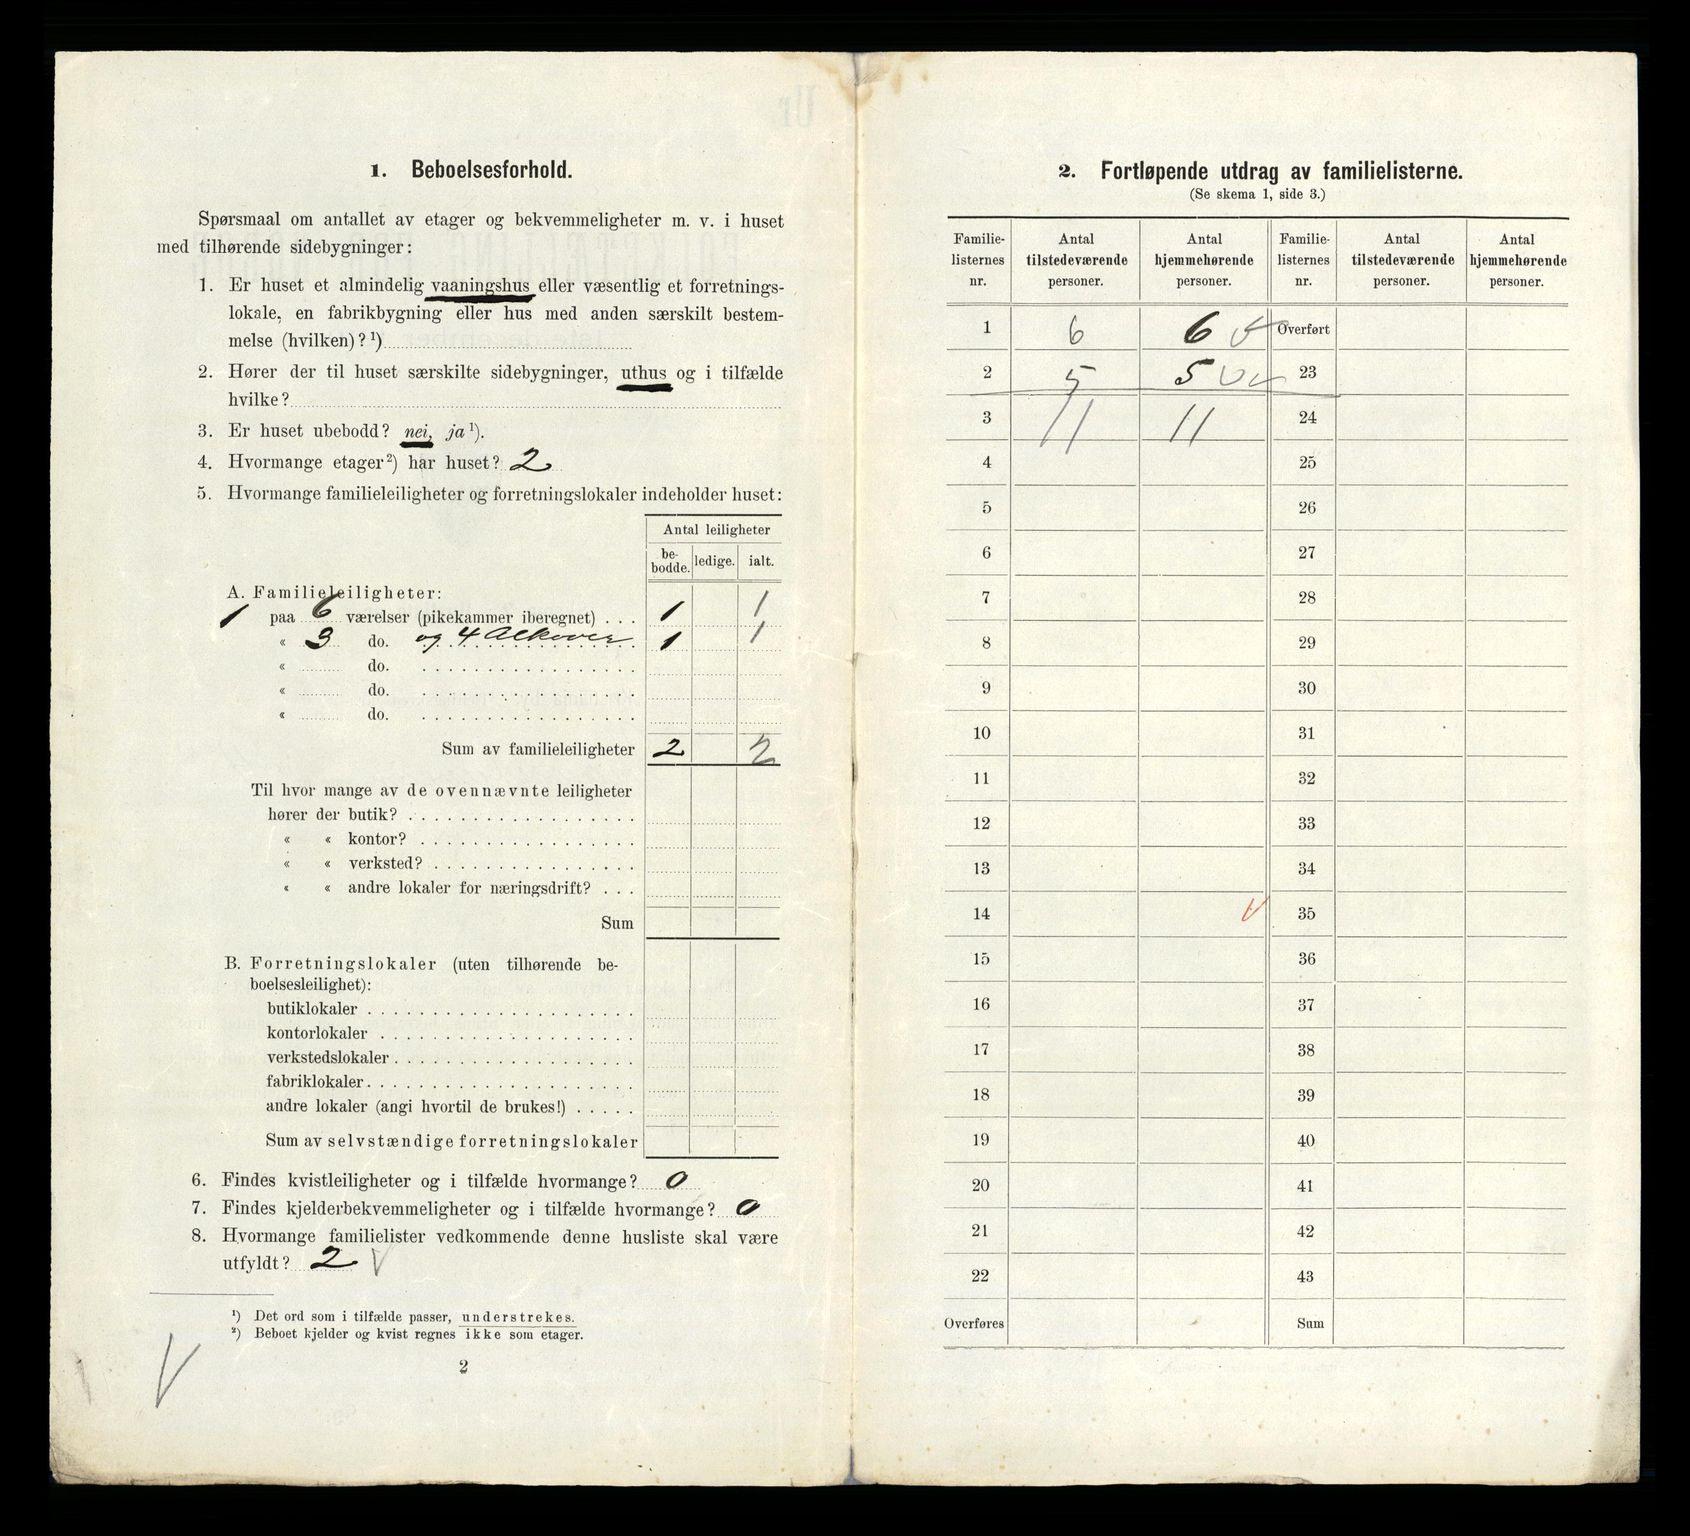 1. Beboelsesforhold.
Spørsmaal om antallet av etager og bekvemmeligheter m. v. i huset
med tilhørende sidebygninger:
1. Er huset et almindelig vaaningshus eller væsentlig et forretnings-
lokale, en fabrikbygning eller hus med anden særskilt bestem-
melse (hvilken)?¹)
2. Hører der til huset særskilte sidebygninger, uthus og i tilfælde
hvilke?
3. Er huset ubebodd? nei, ja¹).
4. Hvormange etager²) har huset? 2
5. Hvormange familieleiligheter og forretningslokaler indeholder huset:
Antal leiligheter
be-
bodde. ledige. ialt.
A. Familieleiligheter:
1 paa 6 værelser (pikekammer iberegnet) . . . 1 1
« 3 do. og 4 Alkover 1 1
« do.
« do.
« do.
Sum av familieleiligheter 2 2
Til hvor mange av de ovennævnte leiligheter
hører der butik?
« « kontor?
« « verksted?
« « andre lokaler for næringsdrift? . . .
Sum
B. Forretningslokaler (uten tilhørende be-
boelsesleilighet):
butiklokaler
kontorlokaler
verkstedslokaler
fabriklokaler
andre lokaler (angi hvortil de brukes!) . . . . .
Sum av selvstændige forretningslokaler
6. Findes kvistleiligheter og i tilfælde hvormange? 0
7. Findes kjelderbekvemmeligheter og i tilfælde hvormange? 0
8. Hvormange familielister vedkommende denne husliste skal være
utfyldt? 2
¹) Det ord som i tilfælde passer, understrekes.
²) Beboet kjelder og kvist regnes ikke som etager.
2
2. Fortløpende utdrag av familielisterne.
(Se skema 1, side 3.)
Familie- Antal Antal Familie- Antal Antal
listernes tilstedeværende hjemmehørende listernes tilstedeværende hjemmehørende
nr. personer. personer. nr. personer. personer.
1 6 6 Overført
2 5 5 23
3 11 11 24
4 25
5 26
6 27
7 28
8 29
9 30
10 31
11 32
12 33
13 34
14 35
15 36
16 37
17 38
18 39
19 40
20 41
21 42
22 43
Overføres Sum